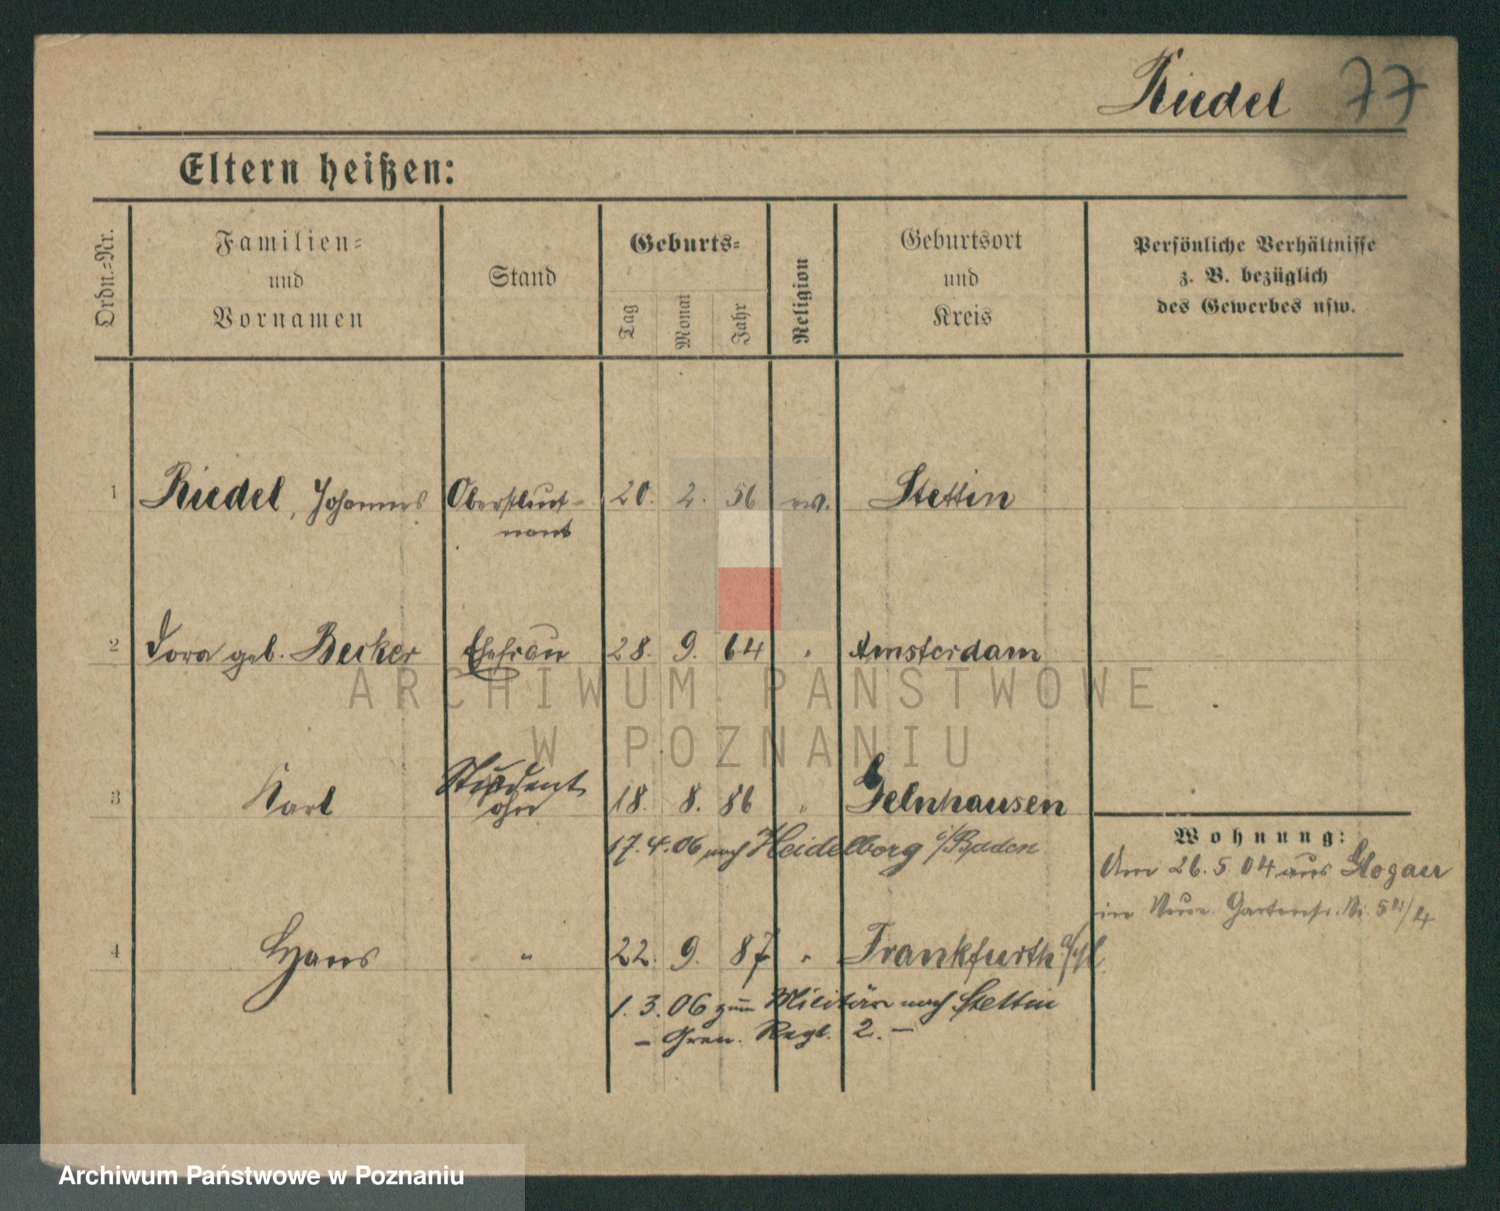 Riedel 77
Eltern heißen:
Ordn.=Nr.
Familien=
und
Vornamen
Stand
Geburts=
Tag
Monat
Jahr
Religion
Geburtsort
und
Kreis
Persönliche Verhältnisse
z. B. bezüglich
des Gewerbes usw.
1 Riedel, Johannes Oberstleut- 20. 2. 56 ev. Stettin
nant
2 Dora geb. Becker Ehefrau 28. 9. 64 " Amsterdam
3 Karl Student 18. 8. 86 " Gelnhausen
ohne
17.4.06 nach Heidelberg i/Baden
Wohnung:
Am 26.5.04 aus Glogau
in Gartenstr. Nr. 5
4 Hans " 22. 9. 87 " Frankfurth
1.3.06 zum Militär nach Stettin
- Gren. Regt. 2. -
ARCHIWUM PAŃSTWOWE
W POZNANIU
Archiwum Państwowe w Poznaniu